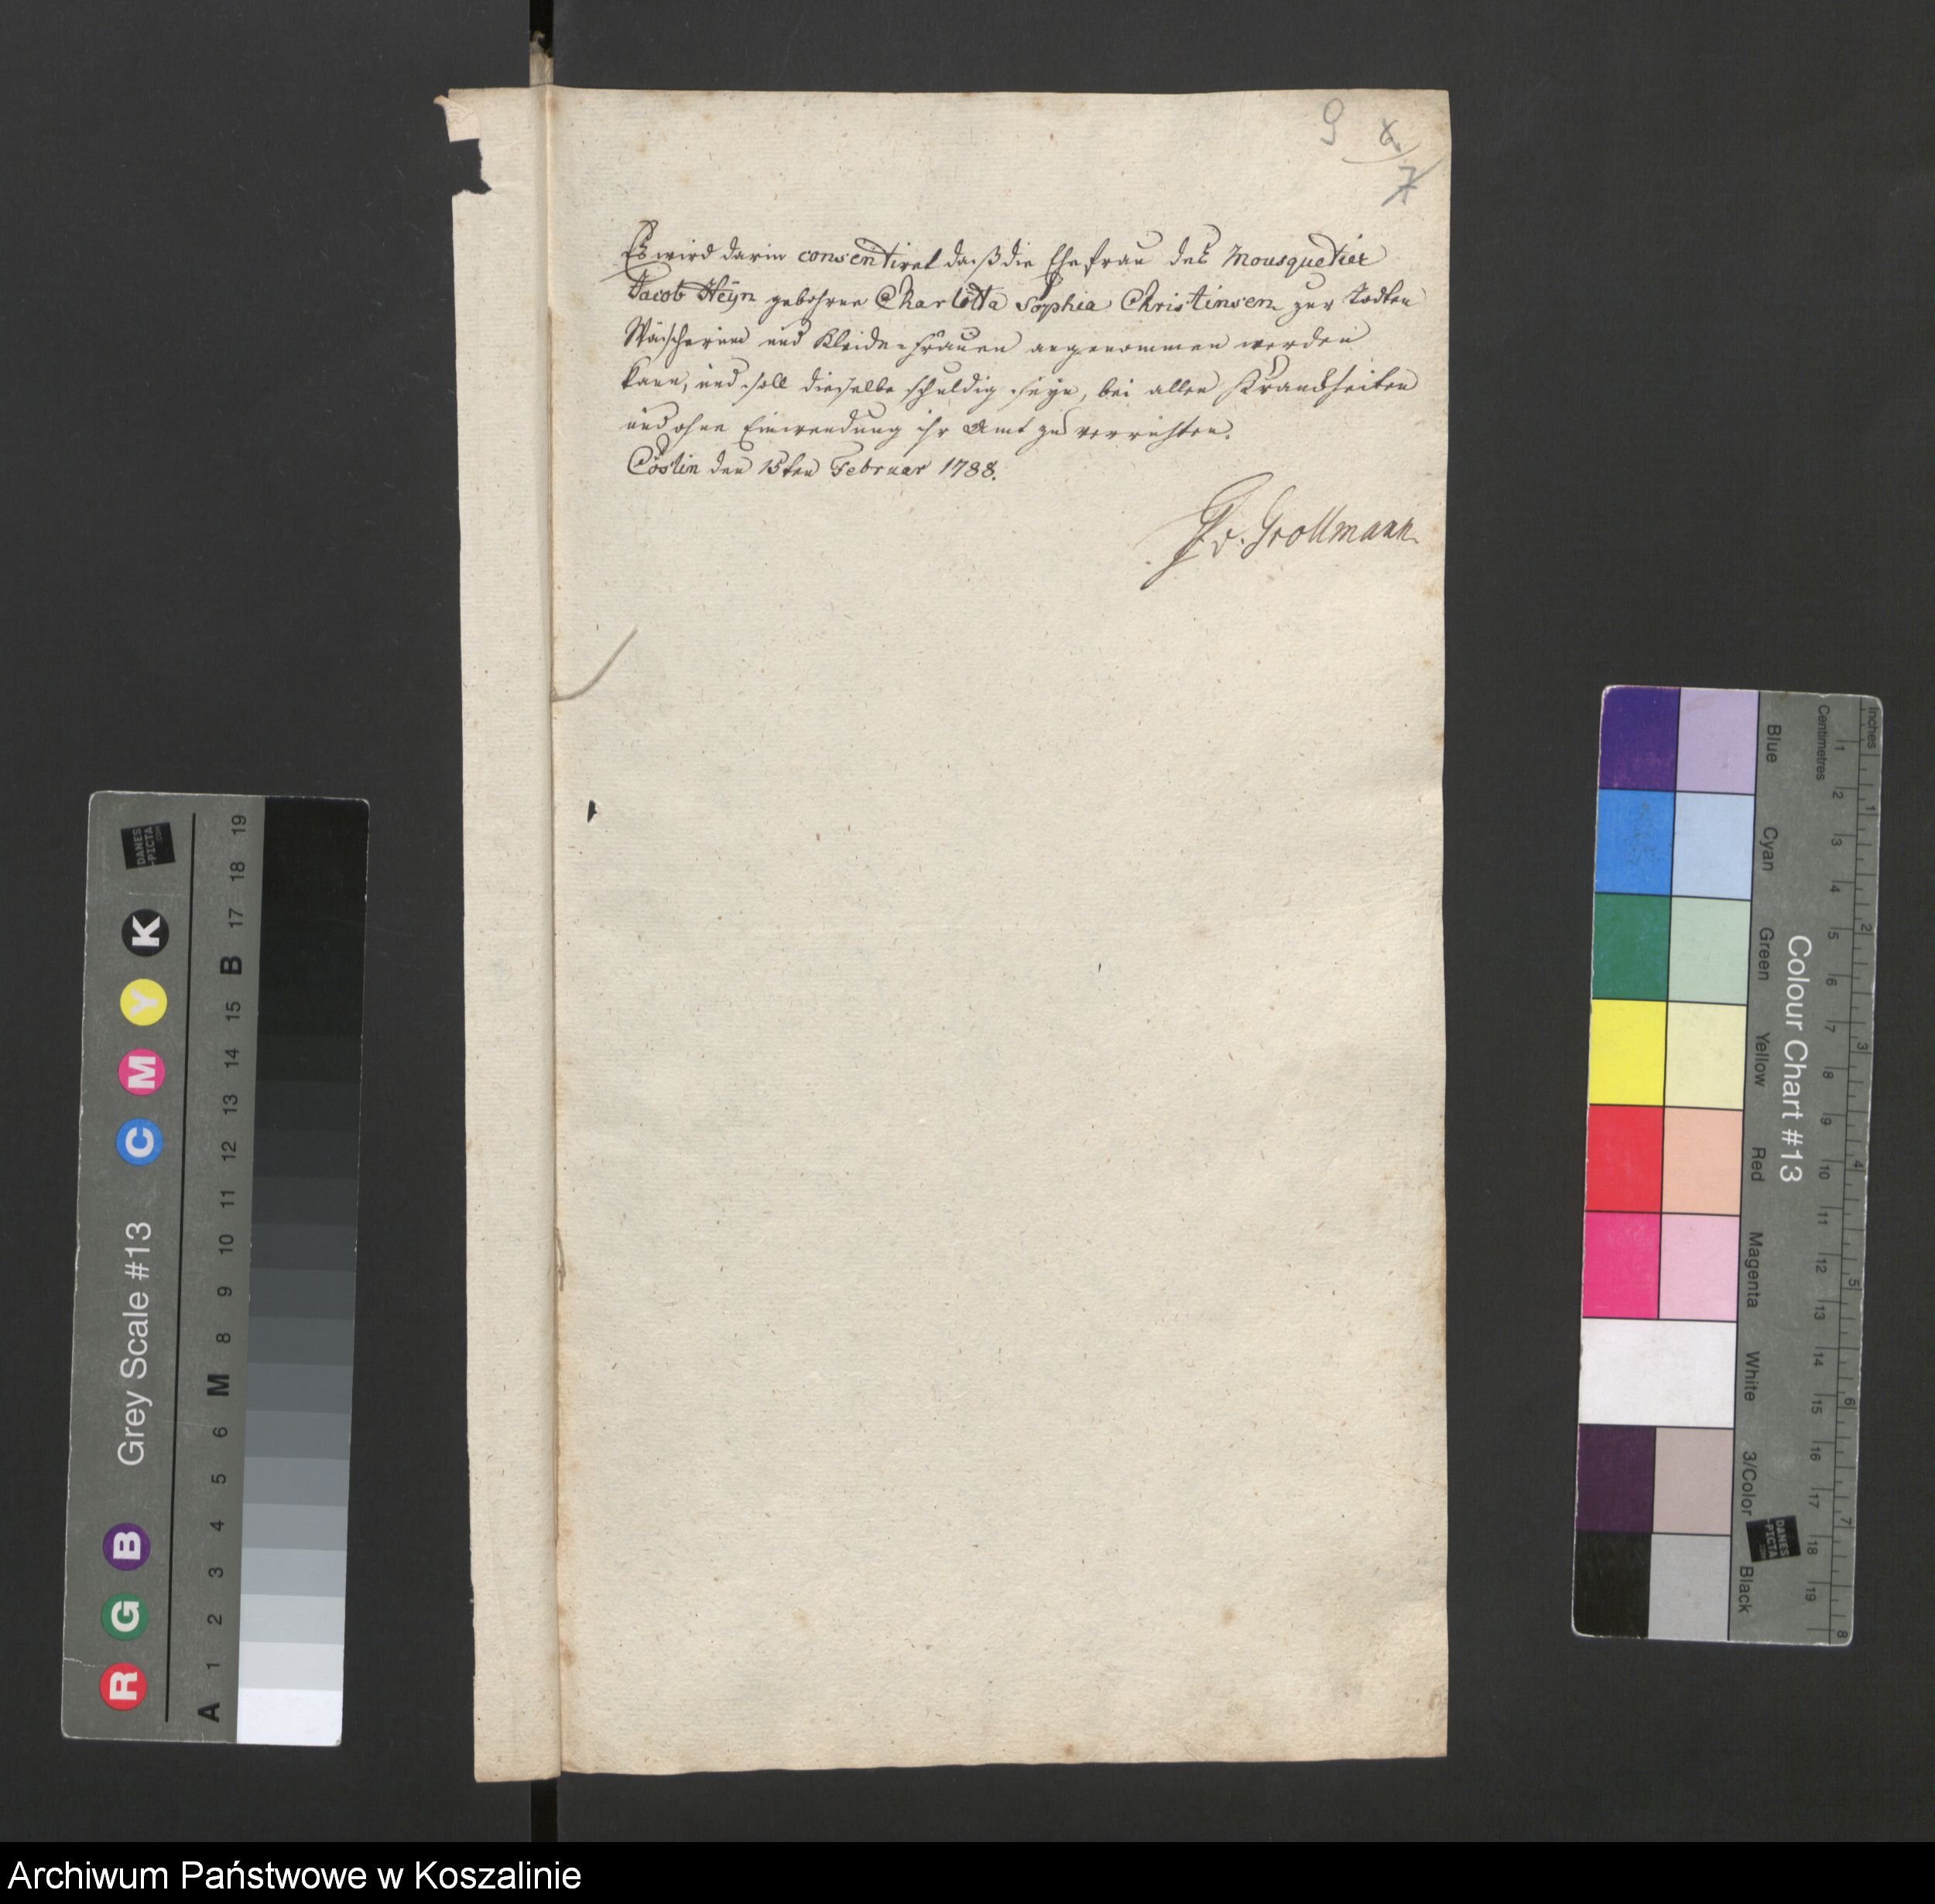 9 8
7
Es wird darin consentiret daß die Ehefrau des Mousquetier
Jacob Heÿn gebohrne Charlotta Sophia Christinsen zur Todten
Wäscherinn und Kleide-Frauen angenommen werden
kann, und soll dieselbe schuldig seyn, bei allen Krankheiten
und ohne Einwendung ihr Amt zu verrichten.
Cöslin den 15ten Februar 1788.
v. Grollmann
DANES
-PICTA
.com
Grey Scale #13
R G B C M Y K
A 1 2 3 4 5 6 M 8 9 10 11 12 13 14 15 B 17 18 19
Colour Chart #13
Blue Cyan Green Yellow Red Magenta White 3/Color Black
Inches 1 2 3 4 5 6 7 8
Centimetres 1 2 3 4 5 6 7 8 9 10 11 12 13 14 15 16 17 18 19
DANES
-PICTA
.com
Archiwum Państwowe w Koszalinie